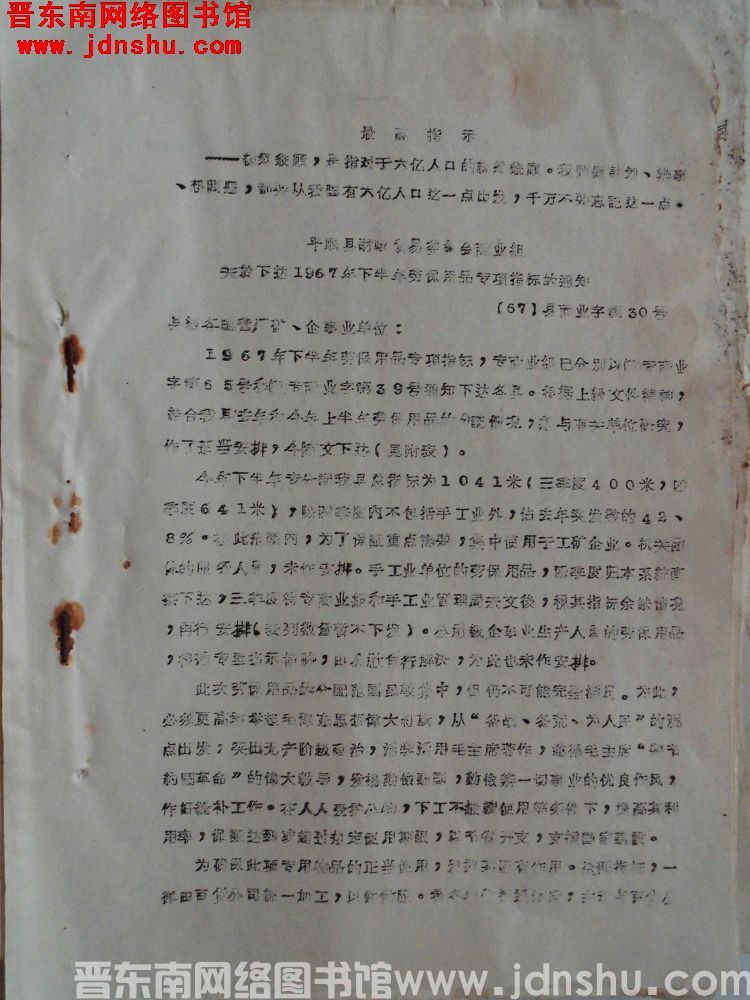 晋东南网络图书馆
www.jdnshu.com
最高指示
——统筹兼顾，是指对于六亿人口的统筹兼顾。我們做計划、办事
、想問題，都要从我國有六亿人口这一点出发，千万不要忘記这一点。
平順县財政貿易委員会商业組
关於下达1967年下半年劳保用品专項指标的通知
(67)县商业字第30号
县級各國营厂矿、企事业单位：
1967年下半年劳保用品专項指标，专商业組已分别以
字第65号和 专商业字第39号通知下达各县。根据上級文件精神，
結合我县去年和今年上半年劳保用品的分配情况， 与有关单位研究，
作了适当安排，今随文下达(見附表)。
今年下半年专分配我县总指标为1041米(三季度400米，四
季度641米)，除四季度内不包括手工业外，佔去年实发数的42、
8%。在此 内，为了保証重点需要，集中使用于工矿企业。机关团
体的服务人員，未作安排。手工业单位的劳保用品，四季度归本系統
下达，三季度待专商业組和手工业管理局来文後，視其指标余缺情况
，再行安排(表列数量暫不下发)。公社級企事业生产人員的劳保用品
，根据专 指示精神，由公社自行解决，为此也未作安排。
此次劳保用品的分配范圍虽較集中，但仍不可能完全滿足。为此，
必須更高地举起毛澤东思想偉大紅旗，从“备战、备荒、为人民”的覌
点出发；突出无产阶級政治，活学活用毛主席著作，遵循毛主席“要节
約鬧革命”的偉大教导，发揚勤儉 ，勤儉办一切事业的优良作风，
作好縫补工作。在人人爱护 ，下工不 使用等条件下，提高其利
用率，保証达到或超过規定使用期限，以节省开支，支援國家建設。
为确保此項专用物品的正当使用，发揮其应有作用。分配指标，一
律由百貨公司統一加工，以 供应。
晋东南网络图书馆www.jdnshu.com